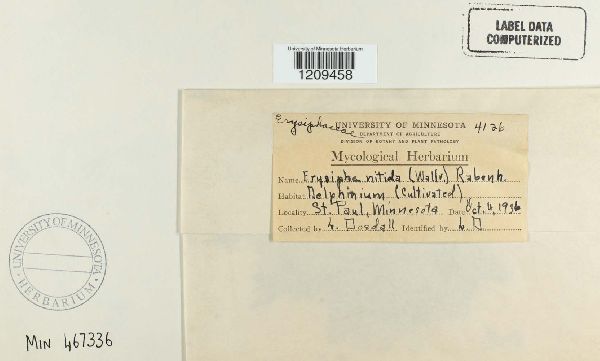 LABEL DATA
COMPUTERIZED
University of Minnesota Herbarium
1209458
Erysiphaceae
UNIVERSITY OF MINNESOTA 4136
DEPARTMENT OF AGRICULTURE
DIVISION OF BOTANY AND PLANT PATHOLOGY
Mycological Herbarium
Name Erysiphe nitida (Wallr.) Rabenh.
Habitat Delphinium (Cultivated)
Locality St. Paul, Minnesota Date Oct. 4, 1936
Collected by L. Dosdall Identified by L D
UNIVERSITY OF MINNESOTA
HERBARIUM
MIN 467336